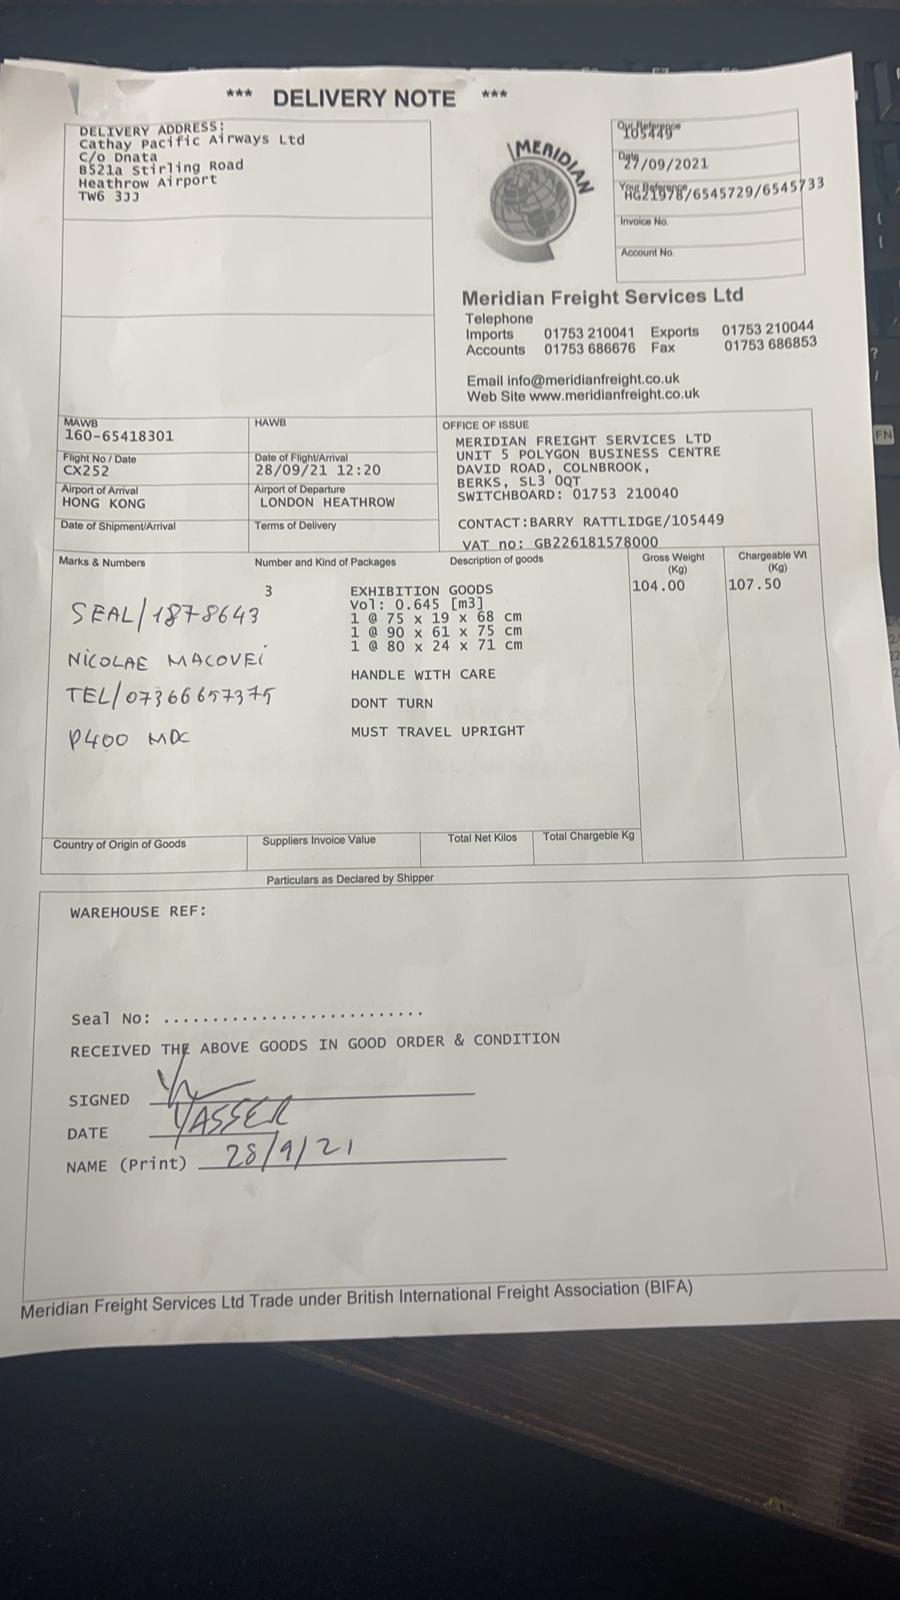 *** DELIVERY NOTE ***
DELIVERY ADDRESS:
Cathay Pacific Airways Ltd
C/o Dnata
B521a Stirling Road
Heathrow Airport
TW6 3JJ
MERIDIAN
Our Reference
105449
Date
27/09/2021
Your Reference
HG21978/6545729/6545733
Invoice No.
Account No.
Meridian Freight Services Ltd
Telephone
Imports 01753 210041 Exports 01753 210044
Accounts 01753 686676 Fax 01753 686853
Email info@meridianfreight.co.uk
Web Site www.meridianfreight.co.uk
MAWB
160-65418301
HAWB
Flight No / Date
CX252
Date of Flight/Arrival
28/09/21 12:20
Airport of Arrival
HONG KONG
Airport of Departure
LONDON HEATHROW
Date of Shipment/Arrival
Terms of Delivery
OFFICE OF ISSUE
MERIDIAN FREIGHT SERVICES LTD
UNIT 5 POLYGON BUSINESS CENTRE
DAVID ROAD, COLNBROOK,
BERKS, SL3 0QT
SWITCHBOARD: 01753 210040
CONTACT:BARRY RATTLIDGE/105449
VAT no: GB226181578000
Marks & Numbers
Number and Kind of Packages
Description of goods
Gross Weight (Kg)
Chargeable Wt (Kg)
3
EXHIBITION GOODS
104.00
107.50
Vol: 0.645 [m3]
1 @ 75 x 19 x 68 cm
1 @ 90 x 61 x 75 cm
1 @ 80 x 24 x 71 cm
HANDLE WITH CARE
DONT TURN
MUST TRAVEL UPRIGHT
SEAL/1878643
NICOLAE MACOVEI
TEL/07366657375
P400 MDC
Country of Origin of Goods
Suppliers Invoice Value
Total Net Kilos
Total Chargeble Kg
Particulars as Declared by Shipper
WAREHOUSE REF:
Seal No: ...........................
RECEIVED THE ABOVE GOODS IN GOOD ORDER & CONDITION
SIGNED
DATE YASSER
NAME (Print) 28/9/21
Meridian Freight Services Ltd Trade under British International Freight Association (BIFA)
FN